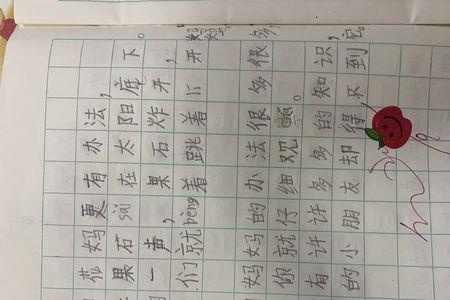 妈更有办法，
果石sài在太阳底下，
一声，果石炸开，
们就bèng着跳着li开
妈妈的办法很多很多，
你就仔细观。
有许许多多的知识，
的小朋友却得不到它。